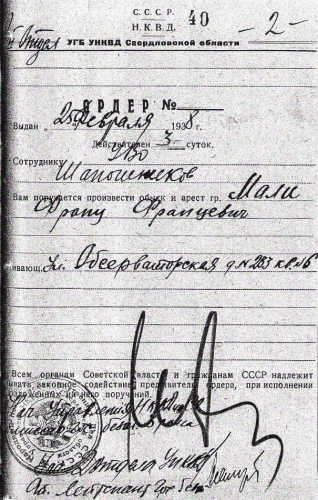 С. С. С. Р.
Н. К. В. Д.
40
— 2 —
Отдел
УГБ УНКВД Свердловской области
ОРДЕР №
Выдан „ 25 " Февраля 1938 г.
Действителен 3 суток.
Сотруднику УВО
Шапошников
Вам поручается произвести обыск и арест гр. Мали
Франц Францевич
ивающ. Ул. Обсерваторская д № 283 кв. № 6
Всем органам Советской власти и гражданам СССР надлежит
ывать законное содействие предъявителю ордера, при исполнении
возложенных на него поручений.
Нач Управления НКВД
Нач Отдела УНКВД
Лейтенант Гос Без